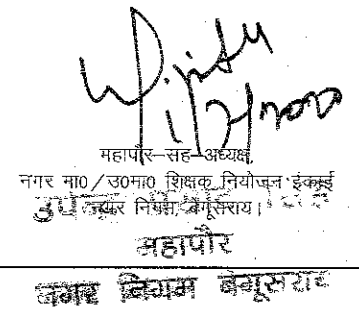 महापौर-सह-अध्यक्ष,
नगर मा0/उ0मा0 शिक्षक नियोजन इकाई
नगर निगम, बेगूसराय।
महापौर
नगर निगम बेगूसराय